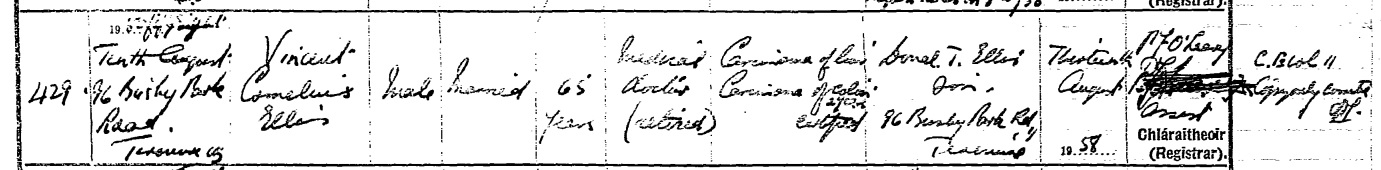 (Registrar).
19
Tenth August
429
96 Bushy Park
Road.
Terenure
Vincent
Cornelius
Ellis
Male
Married
65
years
Medical
doctor
(retired)
Carcinoma of liver
Carcinoma of colon
2 years
certified
Donal T. Ellis
Son.
96 Bushy Park Rd
Terenure
Thirteenth
August
1958
P F O'Leary
Assist
Chláraitheoir
(Registrar).